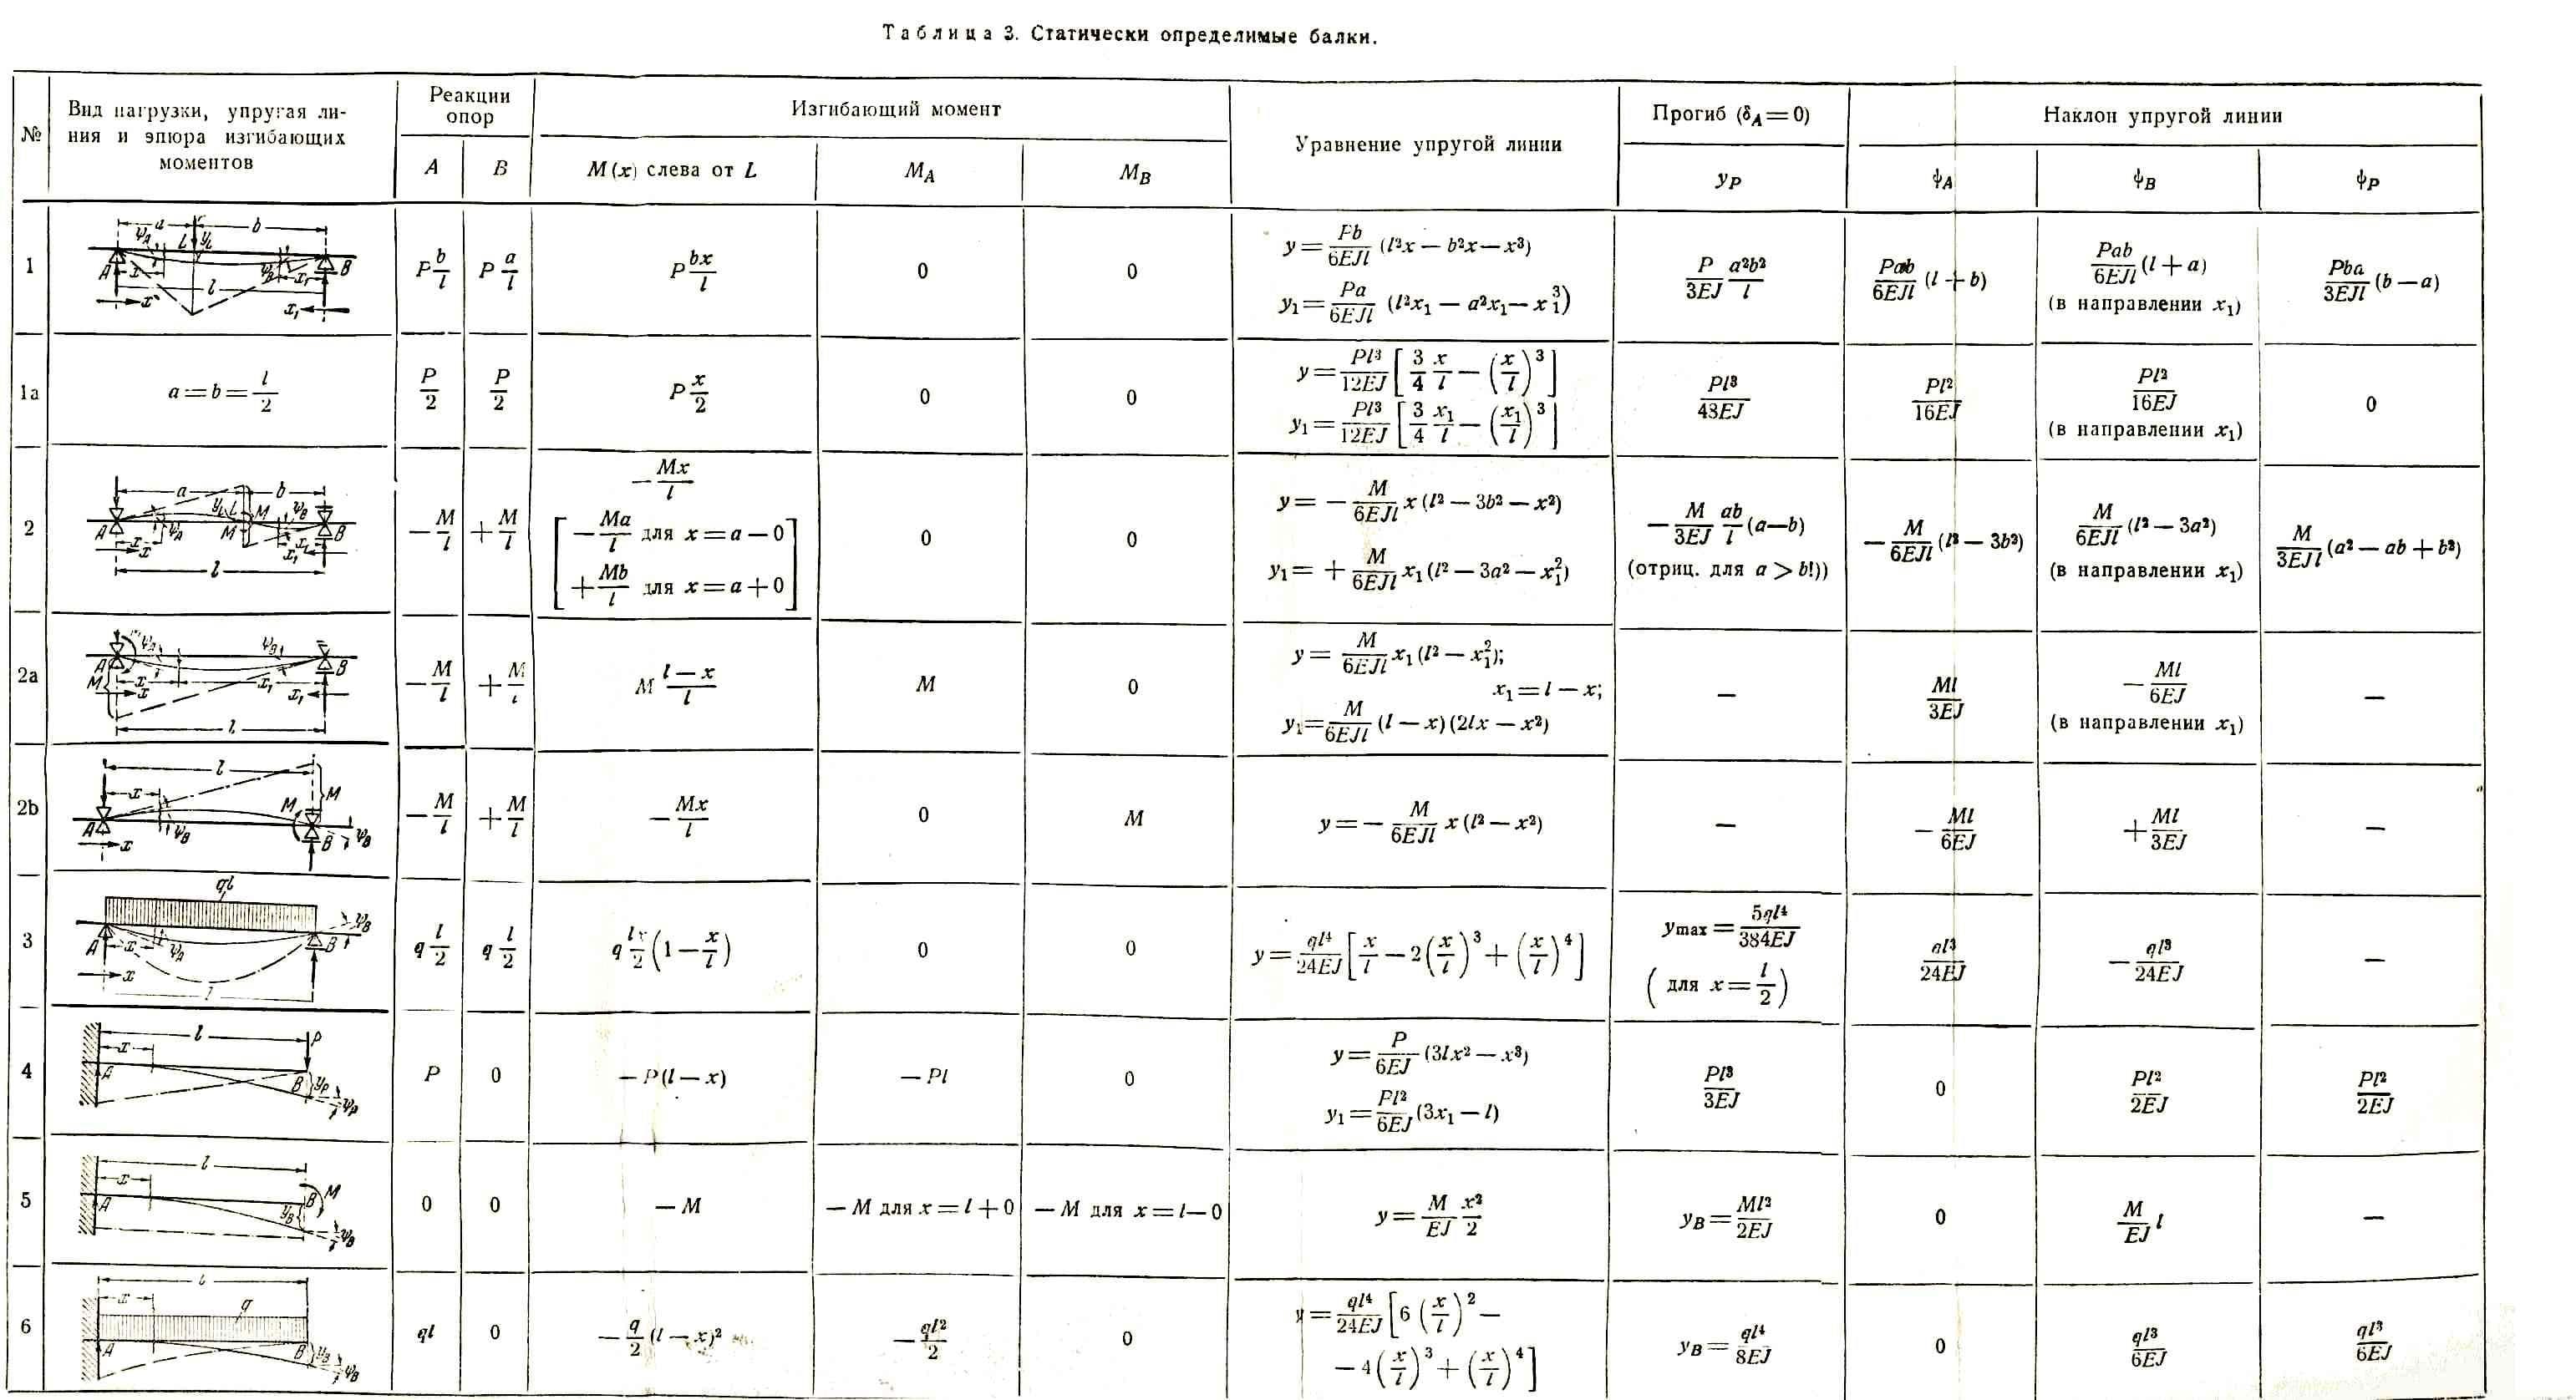 Таблица 3. Статически определимые балки.
№
Вид нагрузки, упругая ли-
ния и эпюра изгибающих
моментов
Реакции
опор
A
B
Изгибающий момент
M (x) слева от L
M_A
M_B
Уравнение упругой линии
Прогиб (δ_A = 0)
y_P
Наклон упругой линии
ψ_A
ψ_B
ψ_P
1
P b/l
P a/l
P bx/l
0
0
y = Pb/6EJl (l²x — b²x — x³)
y₁ = Pa/6EJl (l²x₁ — a²x₁ — x₁³)
P/3EJ a²b²/l
Pab/6EJl (l + b)
Pab/6EJl (l + a)
(в направлении x₁)
Pba/3EJl (b — a)
1a
a = b = l/2
P/2
P/2
P x/2
0
0
y = Pl³/12EJ [3/4 x/l — (x/l)³]
y₁ = Pl³/12EJ [3/4 x₁/l — (x₁/l)³]
Pl³/48EJ
Pl²/16EJ
Pl²/16EJ
(в направлении x₁)
0
2
— M/l
+ M/l
— Mx/l
[— Ma/l для x = a — 0
+ Mb/l для x = a + 0]
0
0
y = — M/6EJl x (l² — 3b² — x²)
y₁ = + M/6EJl x₁ (l² — 3a² — x₁²)
— M/3EJ ab/l (a—b)
(отриц. для a > b!))
— M/6EJl (l² — 3b²)
M/6EJl (l² — 3a²)
(в направлении x₁)
M/3EJl (a² — ab + b²)
2a
— M/l
+ M/l
M l — x/l
M
0
y = M/6EJl x₁ (l² — x₁²);
x₁ = l — x;
y₁ = M/6EJl (l — x) (2lx — x²)
—
Ml/3EJ
— Ml/6EJ
(в направлении x₁)
—
2b
— M/l
+ M/l
— Mx/l
0
M
y = — M/6EJl x (l² — x²)
—
— Ml/6EJ
+ Ml/3EJ
—
3
q l/2
q l/2
q lx/2 (1 — x/l)
0
0
y = ql⁴/24EJ [x/l — 2 (x/l)³ + (x/l)⁴]
y_max = 5ql⁴/384EJ
(для x = l/2)
ql³/24EJ
— ql³/24EJ
—
4
P
0
— P (l — x)
— Pl
0
y = P/6EJ (3lx² — x³)
y₁ = Pl²/6EJ (3x₁ — l)
Pl³/3EJ
0
Pl²/2EJ
Pl²/2EJ
5
0
0
— M
— M для x = l + 0
— M для x = l — 0
y = M/EJ x²/2
y_B = Ml²/2EJ
0
M/EJ l
—
6
ql
0
— q/2 (l — x)²
— ql²/2
0
y = ql⁴/24EJ [6 (x/l)² —
— 4 (x/l)³ + (x/l)⁴]
y_B = ql⁴/8EJ
0
ql³/6EJ
ql³/6EJ